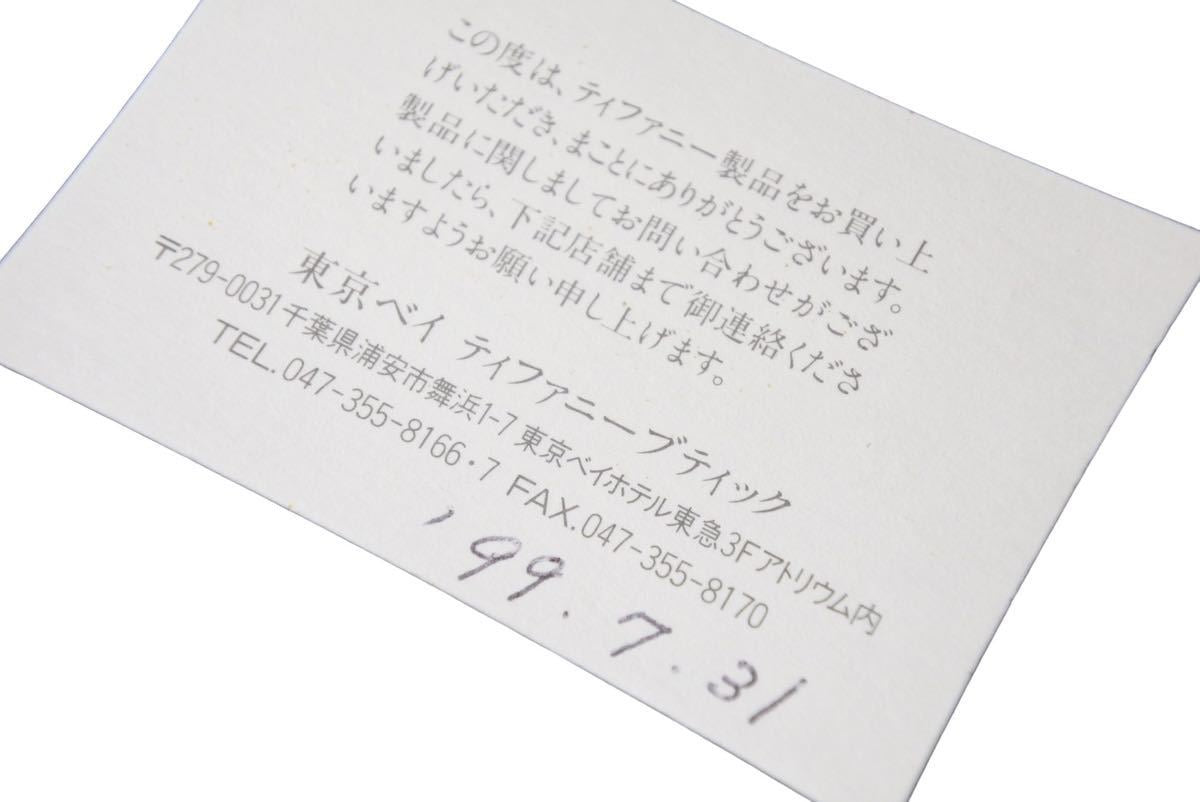 この度は、ティファニー製品をお買い上
げいただき、まことにありがとうございます。
製品に関しましてお問い合わせがござ
いましたら、下記店舗まで御連絡くださ
いますようお願い申し上げます。
東京ベイ ティファニーブティック
〒279-0031千葉県浦安市舞浜1-7 東京ベイホテル東急3Fアトリウム内
TEL.047-355-8166・7 FAX.047-355-8170
'99.7.31